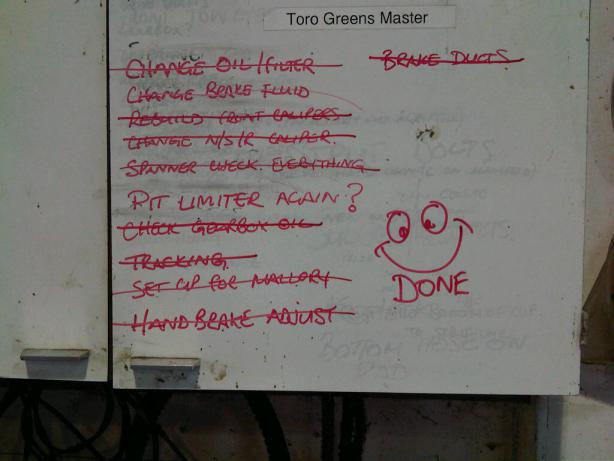 Toro Greens Master
CHANGE OIL/FILTER
BRAKE DUCTS
CHANGE BRAKE FLUID
REBUILD FRONT CALIPERS
CHANGE N/S/R CALIPER.
SPANNER CHECK EVERYTHING
PIT LIMITER AGAIN?
CHECK GEARBOX OIL
TRACKING
SET UP FOR MALLORY
HANDBRAKE ADJUST
DONE
BOTTOM HOSE ON